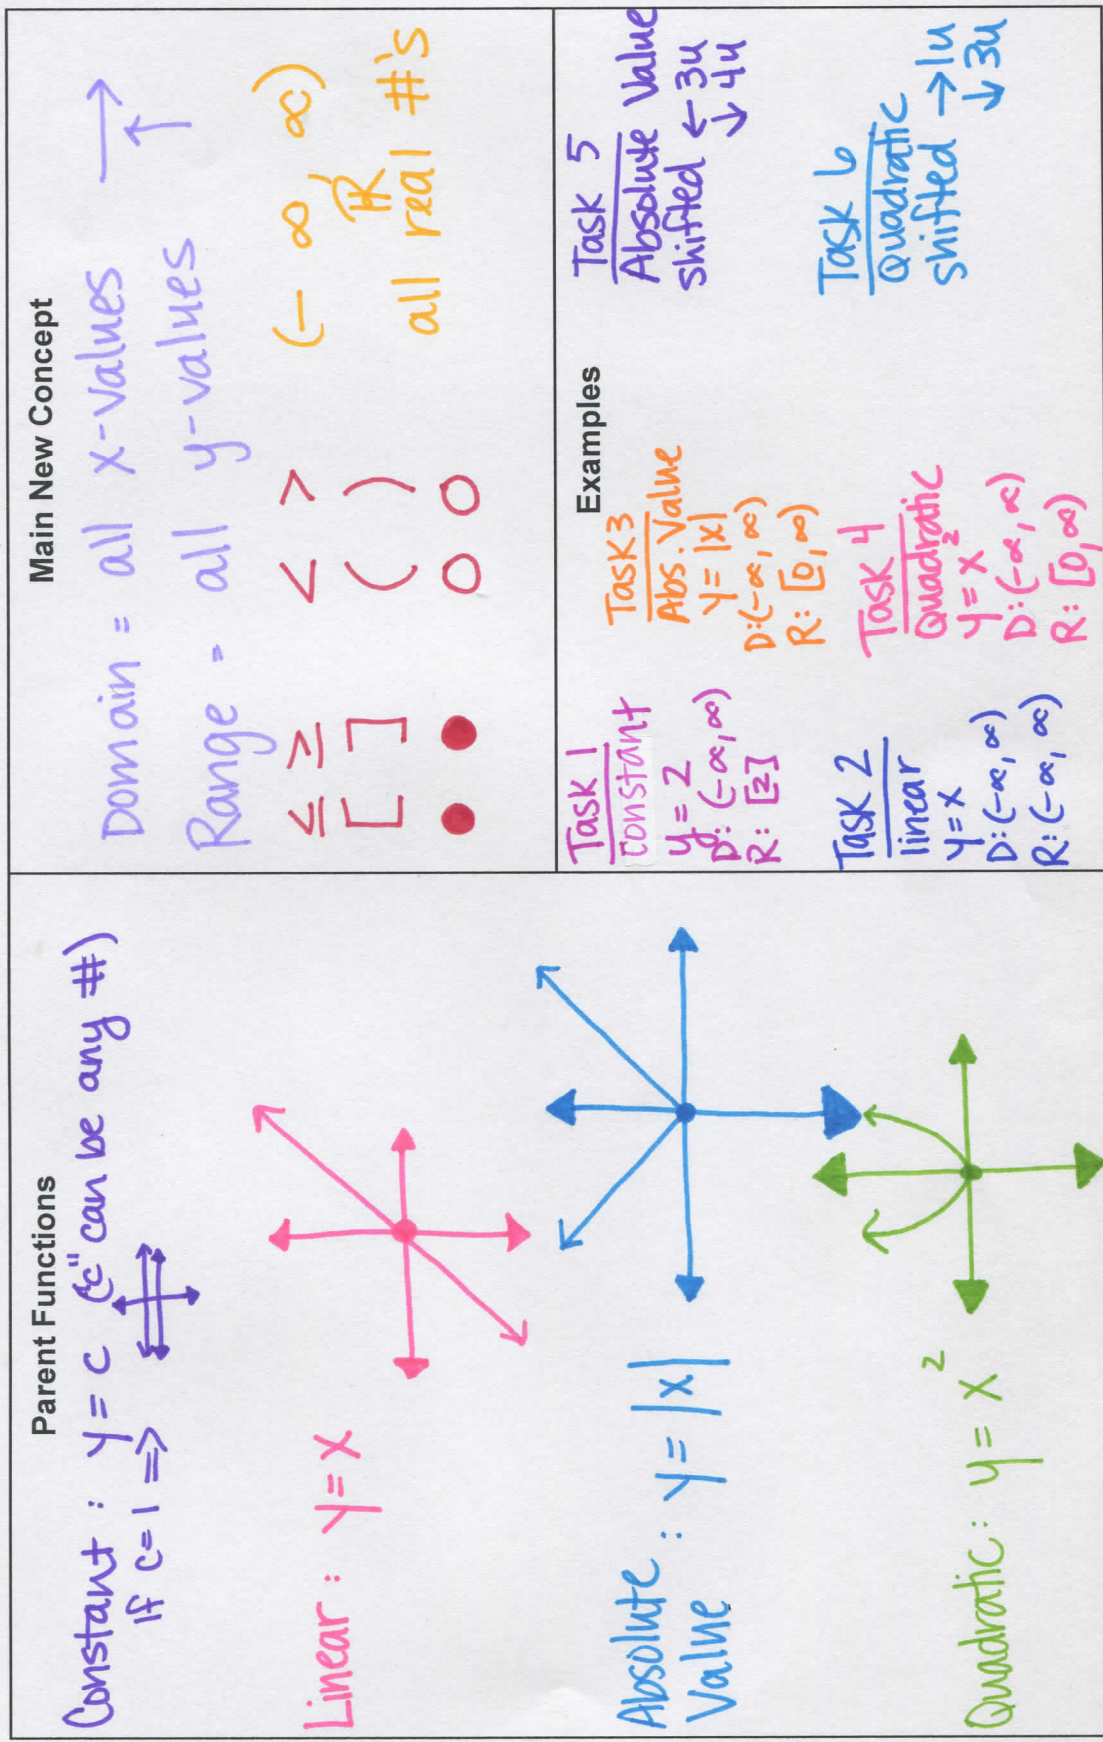 Parent Functions
Constant : y = c ("c" can be any #)
If c=1 ⇒
Linear : y=x
Absolute : y = |x|
Value
Quadratic : y = x²
Main New Concept
Domain = all x-values →
Range = all y-values ↑
≤ ≥ < > (-∞, ∞)
[ ] ( ) ℝ
all real #'s
Examples
Task 1
constant
y = 2
D: (-∞, ∞)
R: [2]
Task 2
linear
y=x
D:(-∞, ∞)
R:(-∞, ∞)
Task 3
Abs. Value
y = |x|
D:(-∞, ∞)
R: [0, ∞)
Task 4
Quadratic
y = x²
D:(-∞, ∞)
R: [0, ∞)
Task 5
Absolute Value
shifted ← 3u
↓ 4u
Task 6
Quadratic
shifted → 1u
↓ 3u